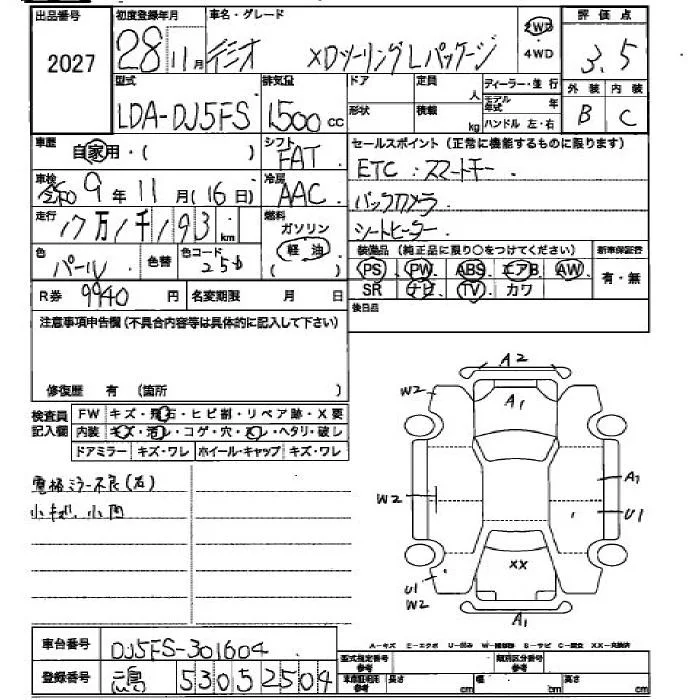 出品番号 2027
初度登録年月 28 11月
車名・グレード デミオ XDツーリングLパッケージ
2WD ・ 4WD
評価点 3.5
外装 B 内装 C
型式 LDA-DJ5FS
排気量 1500 cc
ドア 形状
定員 人 積載 kg
ディーラー・並行
モデル年式 年
ハンドル 左・右
車歴 自家用・( )
シフト FAT
セールスポイント(正常に機能するものに限ります)
ETC. スマートキー.
バックカメラ
シートヒーター.
車検 令和 9年 11月(16日)
冷房 AAC
走行 17万1千193 km
燃料 ガソリン 軽油 ( )
色 パール 色替 色コード 25D
装備品 (純正品に限り○をつけてください) 新車保証書
PS PW ABS エアB AW 有・無
SR ナビ TV カワ
R券 9940 円 名変期限 月 日
後日品
注意事項申告欄(不具合内容等は具体的に記入して下さい)
修復歴 有 (箇所 )
検査員記入欄
FW キズ・飛石・ヒビ割・リペア跡・X要
内装 キズ・汚レ・コゲ・穴・スレ・ヘタリ・破レ
ドアミラー キズ・ワレ ホイール・キャップ キズ・ワレ
電格ミラー不良(右)
小キズ、小凹
A2
W2
A1
A1
W2
U1
XX
U1
W2
A1
A-キズ E-エクボ U-凹み W-補修跡 S-サビ C-腐食 XX-交換済
車台番号 DJ5FS-301604
登録番号 530 52504
型式指定番号 参考 類別区分番号 参考
車庫証明用 参考 長さ cm 幅 cm 高さ cm